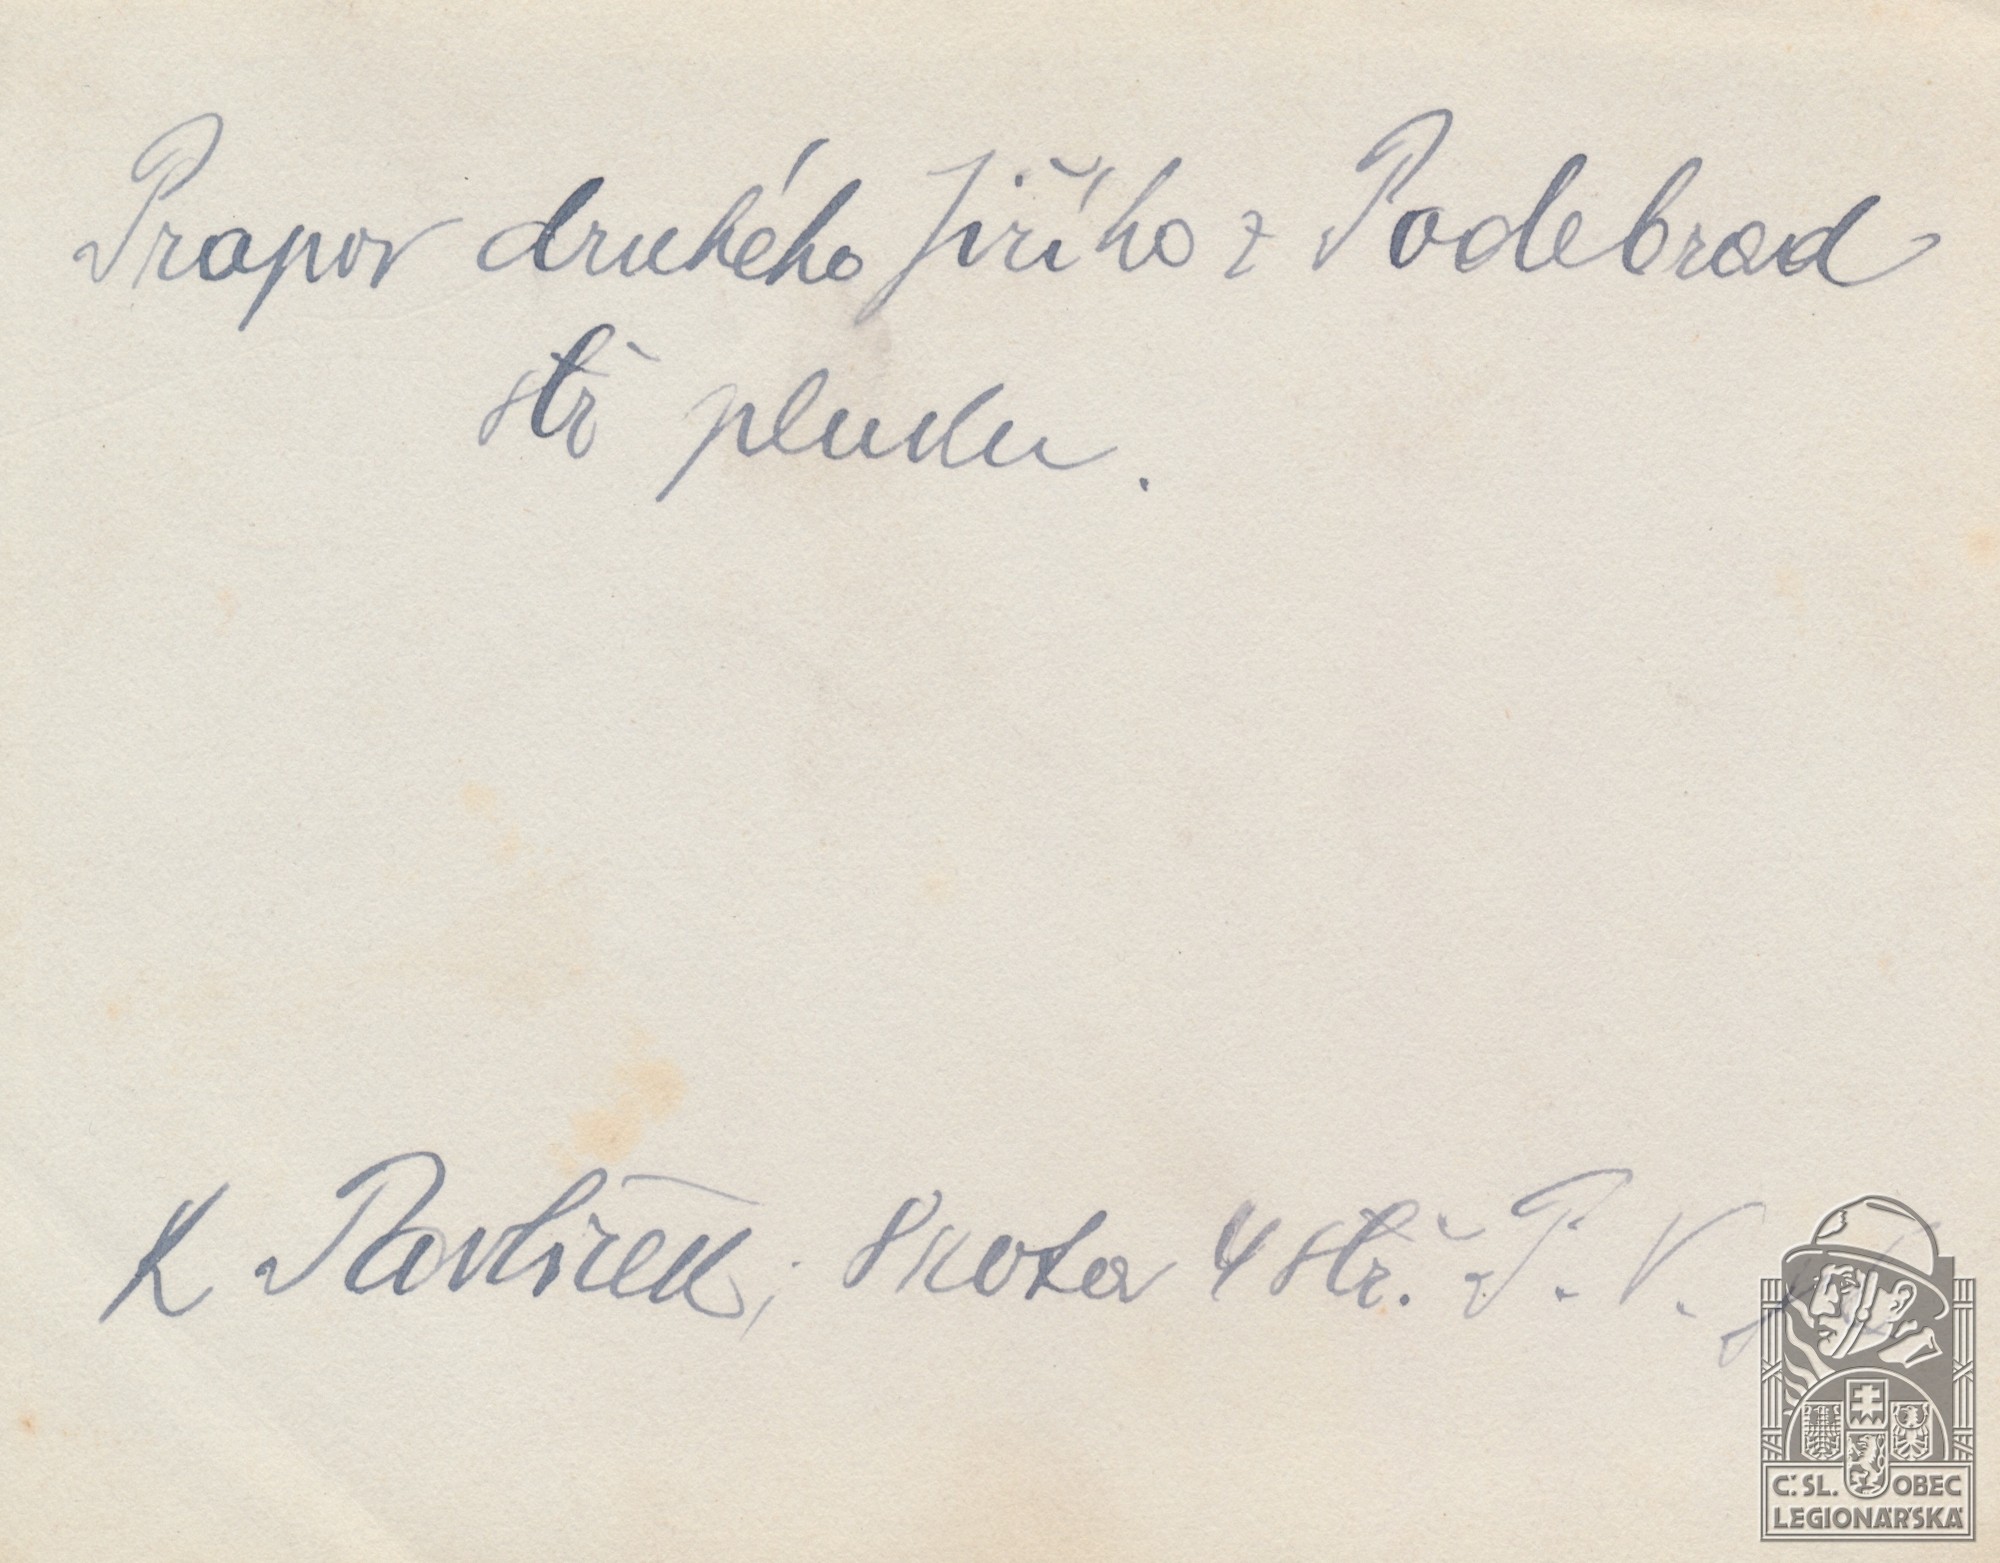 Prapor druhého Jiřího z Podebrad
stř pluku.
K Pavlíček, 8 rota 4 stř. P. V.
Č.SL. OBEC
LEGIONÁŘSKÁ